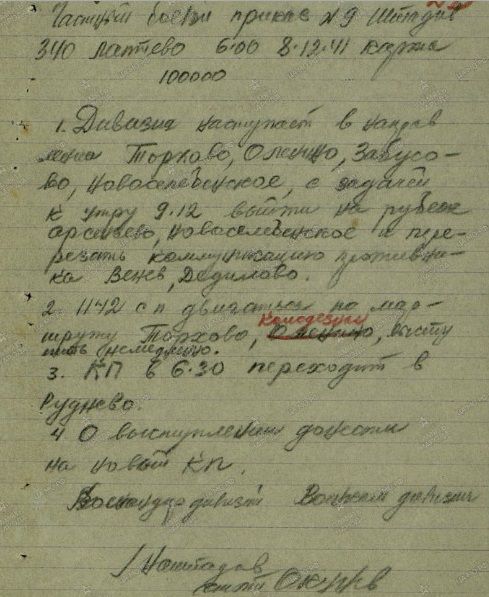 Частный боевой приказ №9 Штадив
340 Лаптево 6.00 8.12.41 карта
100000
1. Дивизия наступает в направ
лении Торхово, Оленино, Забусо-
во, Новоселебенское, с задачей
к утру 9.12 выйти на рубеж
Арсеньево, Новоселебенское и пере-
резать коммуникацию противни-
ка Венев, Дедилово.
2. 1142 сп двигаться по мар-
Колодезная
шруту Торхово, Оленино, высту
пить немедленно.
3. КП в 6.30 переходит в
Руднево.
4 О выступлении донести
на новый КП.
Командир дивизии Военком дивизии
/Наштадив